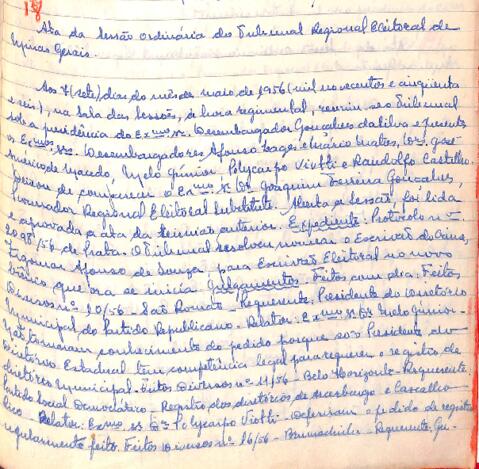 18
Ata da sessão ordinária do Tribunal Regional Eleitoral de
Minas Gerais.
Aos 7 (sete) dias do mês de maio de 1956 (mil novecentos e cinqüenta
e seis), na Sala das Sessões, à hora regimental, reuniu-se o Tribunal
sob a presidência do Exmo. Sr. Desembargador Gonçalves da Silva e presentes
os Exmos. Srs. Desembargadores Afonso Lages e Mário Matos, Drs. José
Américo de Macedo, Melo Júnior, Polycarpo Viotti e Randolfo Castilho.
Deixou de comparecer o Exmo. Sr. Dr. Joaquim Ferreira Gonçalves,
Procurador Regional Eleitoral Substituto. Aberta a sessão, foi lida
e aprovada a ata da reunião anterior. Expediente: Protocolo nº
2098/56 de Prata. O Tribunal resolveu nomear o Escrivão do Crime,
Afonso de Souza, para Escrivão Eleitoral no novo
biênio que ora se inicia. Julgamentos. Feitos com dia: Feitos
Diversos nº 10/56 - São Romão - Requerente: Presidente do Diretório
Municipal do Partido Republicano. Relator: Exmo. Sr. Dr. Melo Júnior -
Não tomaram conhecimento do pedido porque só o Presidente do
Diretório Estadual tem competência legal para requerer o registro de
diretório municipal. Feitos Diversos nº 11/56 - Belo Horizonte - Requerente:
Partido Social Democrático - Registro dos diretórios de e Cascalho
Rico - Relator: Exmo. Sr. Dr. Polycarpo Viotti - Deferiram o pedido de registro
regularmente feito. Feitos Diversos nº 16/56 - Brumadinho - Requerente: